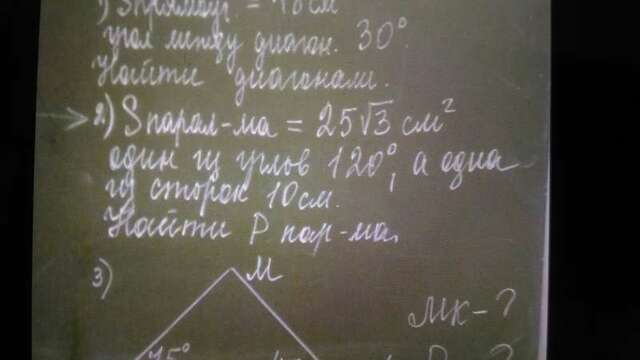 1) Sпрямоуг. = 18 см
угол между диагон. 30°
Найти диагонали.
2) Sпарал-ма = 25√3 см²
один из углов 120°, а одна
из сторон 10см.
Найти P пар-ма.
3)
M
МК-?
P ?